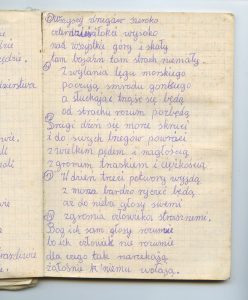 szeroko
wysoko
nad wszystkie góry i skały
tam bojazń tam strach niemały.
② Z wylania tego morskiego
poczują smrodu gorskiego
a słuchając trząść się będą
od strachu rozum pozbędą
③ Drugi dzień się morze
i do swych brzegów powróci
z wielkim pędem i nagłością
z gromem traskiem i ciężkością
④ W dzień trzeci potwory wyjdą
z moza bardzo ryczeć będą
aż do nieba głosy swemi
⑤ zagromią człowieka strasznemi.
Bog ich sam głosy rozumie
bo ich człowiek nie rozumie
dla czego tak narzekają
żałośnie k'niemu wołają.